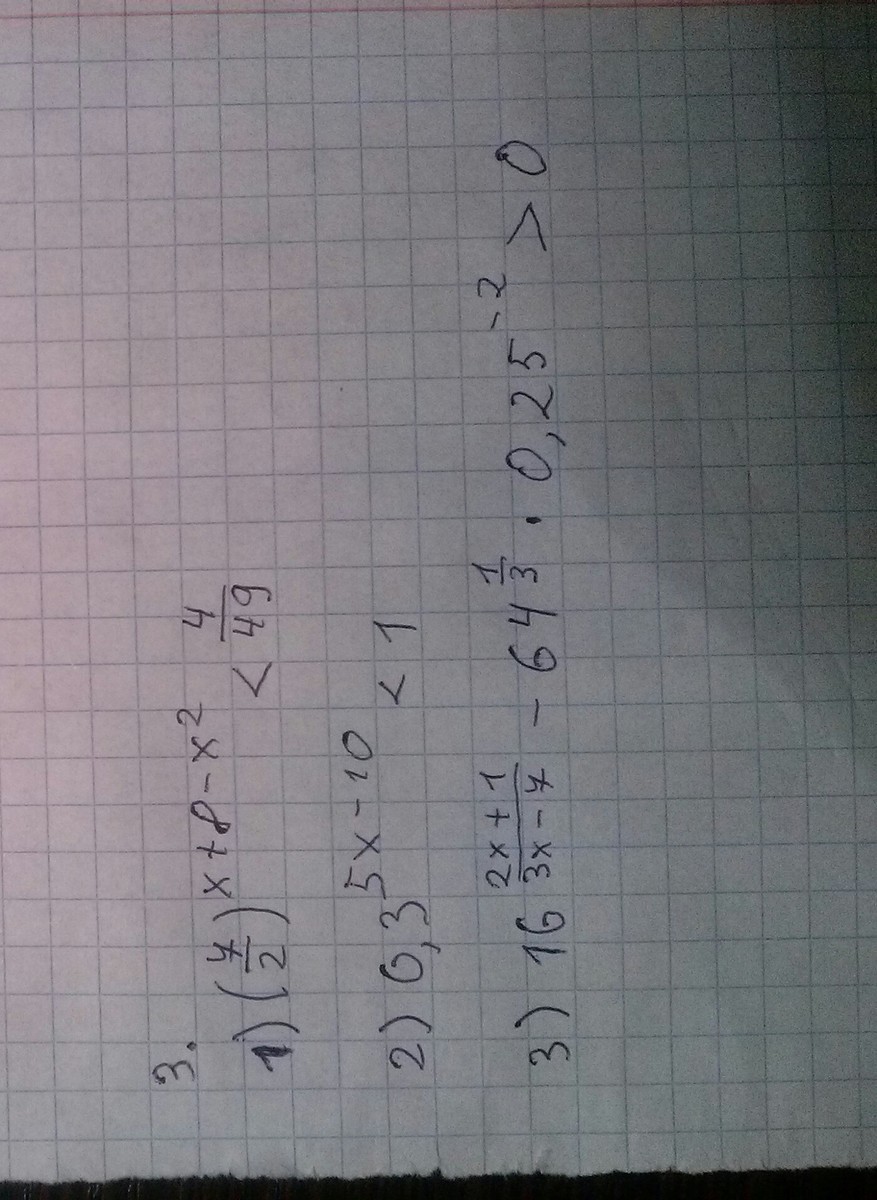 3.
1) (7/2)^(x+8-x²) < 4/49
2) 6,3^(5x-10) < 1
3) 16^((2x+1)/(3x-7)) - 64^(1/3) · 0,25^(-2) > 0